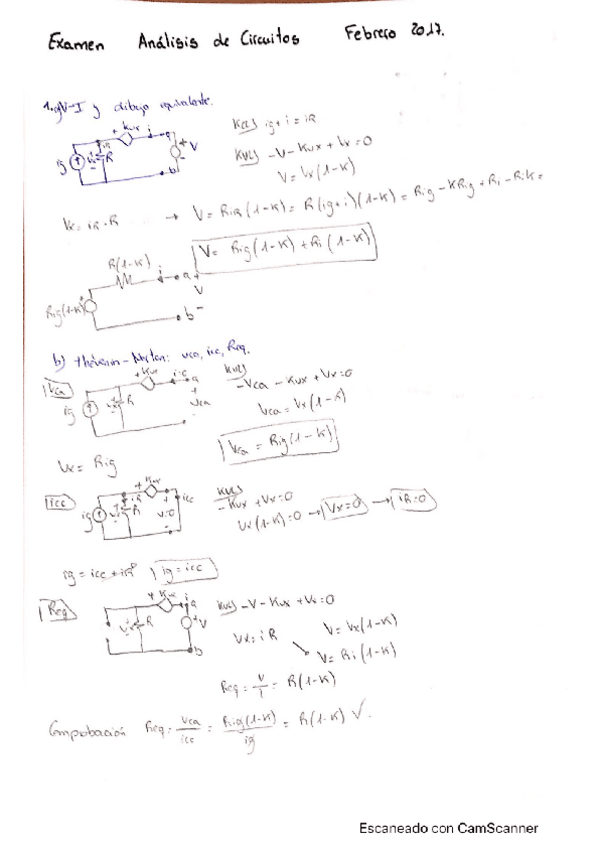 Examen Análisis de Circuitos Febrero 2017.
1. a) V-I y dibujo equivalente.
+ Kvx - i a
ig Vx iR R + V - b
KCL) ig + i = iR
KVL) -V - Kvx + Vx = 0
V = Vx (1-K)
Vx = iR · R → V = RiR (1-K) = R (ig+i) (1-K) = Rig - KRig + Ri - RiK =
V = Rig (1-K) + Ri (1-K)
R(1-K) i a +
Rig(1-K) V
b -
b) Thévenin-Norton: vca, icc, Req.
Vca
+ Kvx - i=0 a
ig Vx R + vca -
KVL)
-Vca - Kvx + Vx = 0
Vca = Vx (1-K)
Vca = Rig (1-K)
Vx = Rig
icc
+ Kvx - icc
ig iR R V=0
KVL)
-Kvx + Vx = 0
Vx (1-K) = 0 → Vx = 0 → iR = 0
ig = icc + iR ig = icc
Req
+ Kvx - i a
Vx R + V - b
KVL) -V - Kvx + Vx = 0
Vx = iR V = Vx (1-K)
V = Ri (1-K)
Req = V/i = R(1-K)
Comprobación Req = vca/icc = Rig(1-K)/ig = R(1-K) ✓.
Escaneado con CamScanner